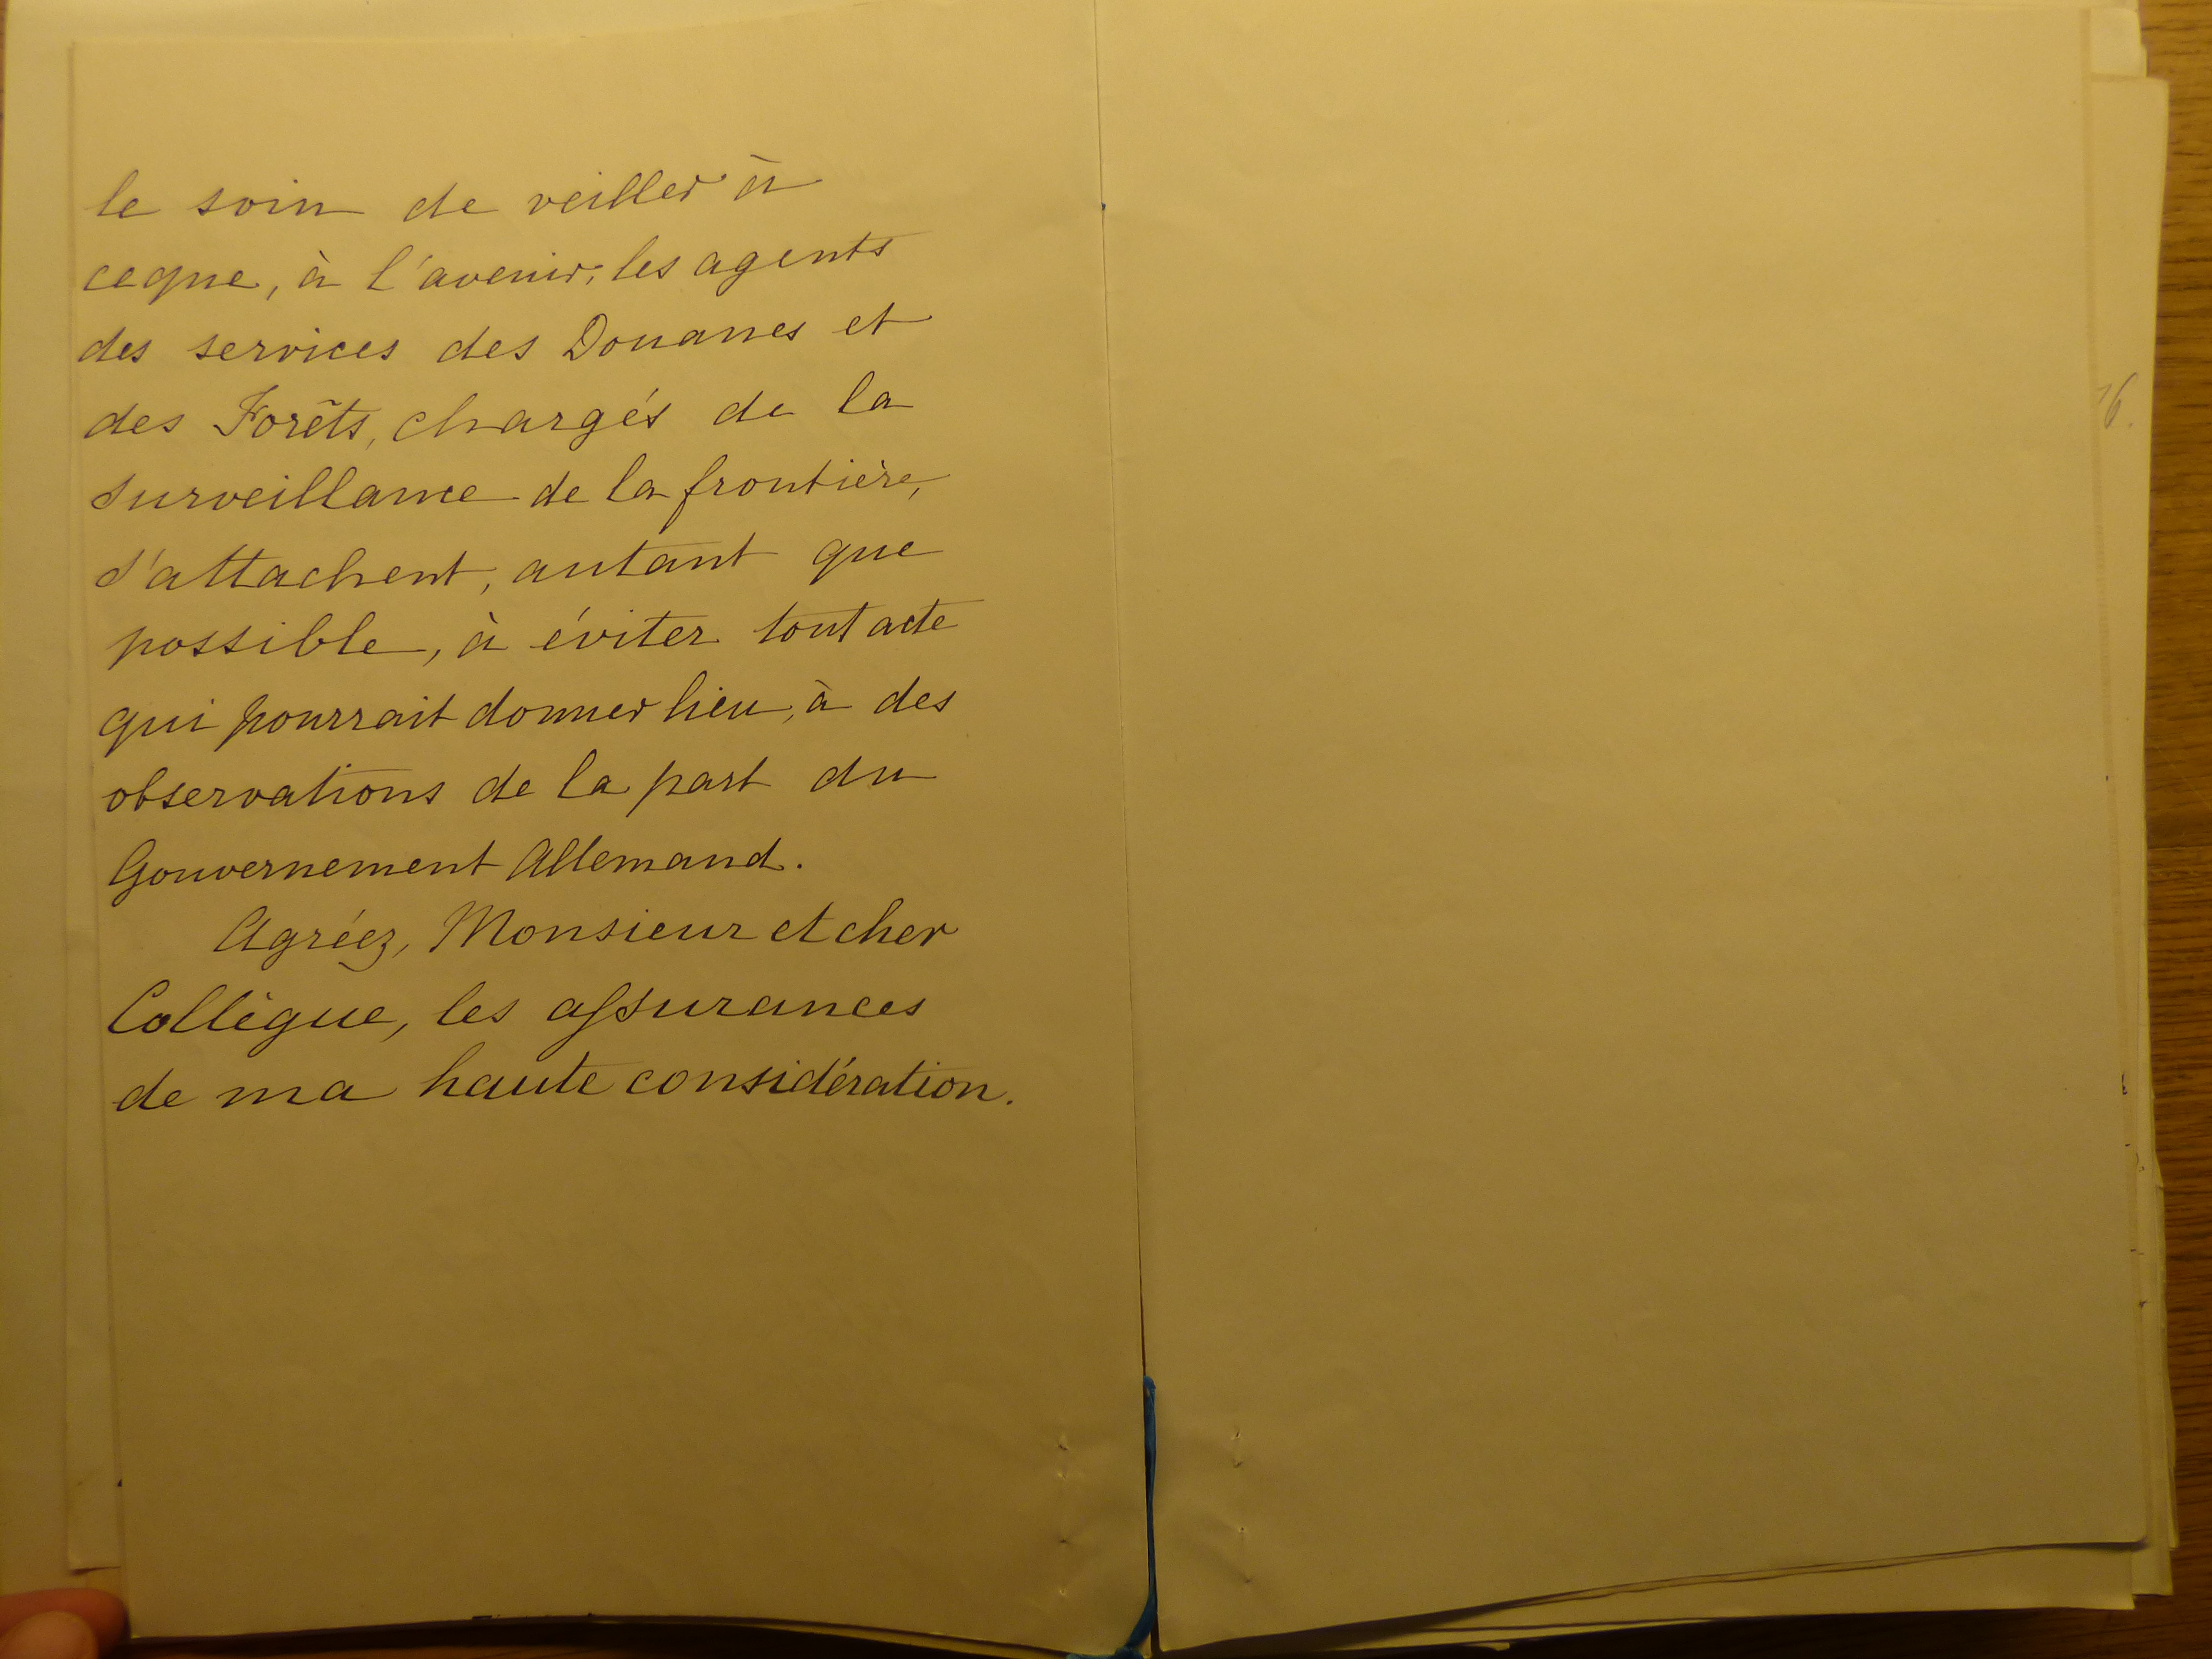 le soin de veiller à
ce que, à l'avenir, les agents
des services des Douanes et
des Forêts, chargés de la
surveillance de la frontière,
s'attachent, autant que
possible, à éviter tout acte
qui pourrait donner lieu, à des
observations de la part du
Gouvernement Allemand.
Agréez, Monsieur et cher
Collègue, les assurances
de ma haute considération.